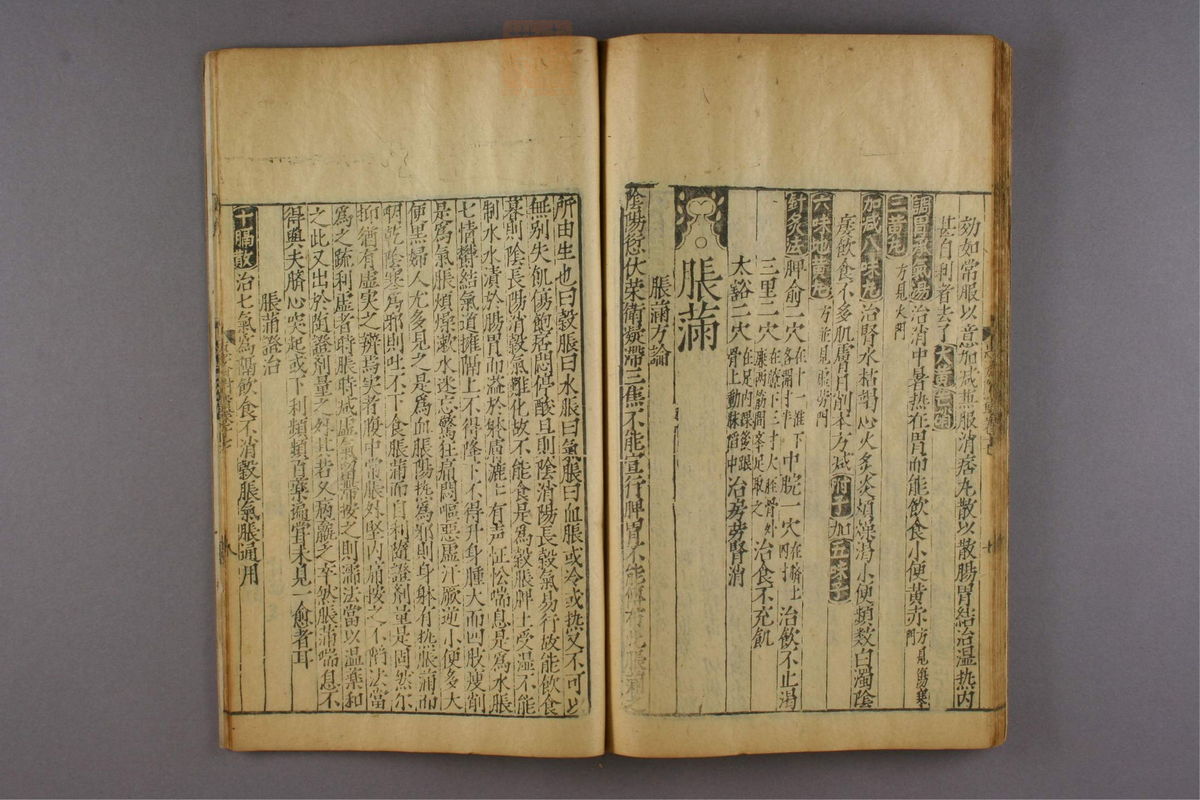 効如常服以意加減無服消痞丸散以散腸胃結治溫熱內
甚自利者去了大黃芒硝
調胃承氣湯治消中暑熱在胃而能飲食小便黃赤方見傷寒門
三黃丸方見火門
加減八味丸治腎水枯竭心火炙炎煩燥渴小便頻数白濁陰
痿飲食不多肌膚日削本方減附子加五味子
六味地黃丸方並見脹滿門
針灸法脾俞二穴在十一椎下各開寸半中脘一穴在臍上四寸治飲不止渴
三里二穴在膝下三寸大脛骨外廉两筋間舉足取之治食不充飢
太谿二穴在足內踝後跟骨上動脉陷中治房劳腎消
脹滿
脹滿方論
陰陽愆伏荣衛凝滯三焦不能宣行脾胃不能
所由生也曰穀脹曰水脹曰氣脹曰血脹或冷或热又不可以
無别失飢傷飽痞悶停酸旦則陰消陽長穀氣易行故能飲食
暮則陰長陽消穀氣難化故不能食是為穀脹脾土受湿不能
制水水漬於腸胃而溢於躰膚漉漉有声怔忪喘息是為水脹
七情欝結氣道擁隔上不得降下不得升身腫大而四肢瘦削
是為氣脹煩燥漱水迷忘驚狂痛悶嘔惡虛汗厥逆小便多大
便黑婦人尤多見之是為血脹陽热為邪則身躰有热脹滿而
咽乾陰寒為邪則吐不下食脹滿而自利随證剤量是固然尔
抑猶有虛実之辨焉実者腹中常脹外堅内痛按之不陷法當
為之疏利虛者時脹時减虛氣留滯按之則濡法當以温藥和
之此又出於随證剤量之外其若久病羸乏卒然脹滿喘息不
得與夫臍心突起或下利頻頻百藥遍嘗未見一愈者耳
脹滿證治
十膈散治七氣為膈飲食不消穀脹氣脹通用